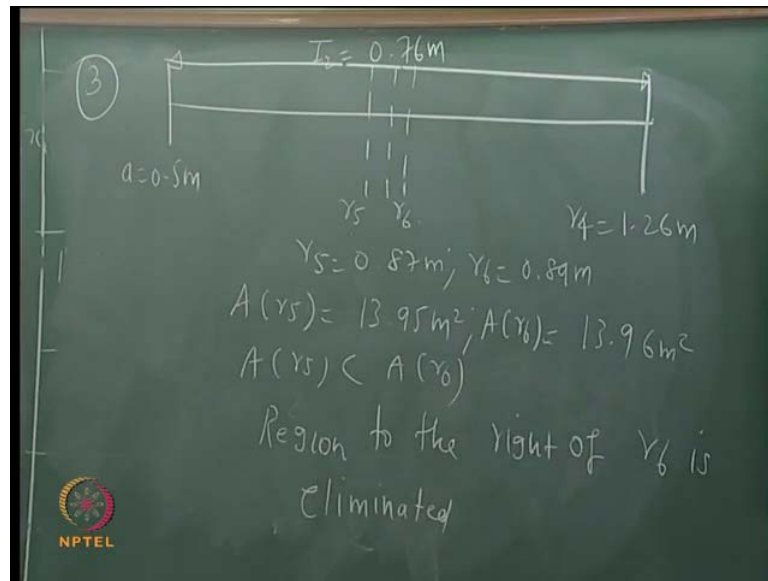 3
I₂ = 0.76m
a=0.5m
γ5 γ6
γ4=1.26m
γ5=0.87m; γ6=0.89m
A(γ5)= 13.95m²; A(γ6)= 13.96m²
A(γ5) < A(γ6)
Region to the right of γ6 is
eliminated
NPTEL